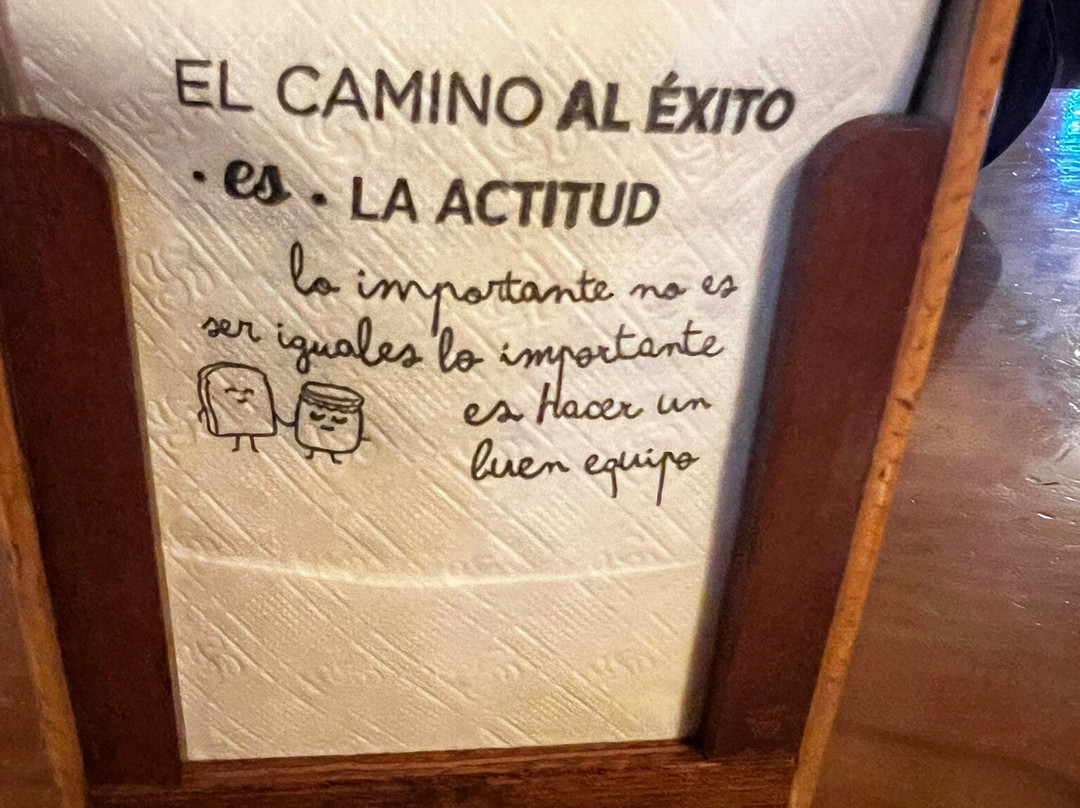 EL CAMINO AL ÉXITO
· es · LA ACTITUD
lo importante no es
ser iguales lo importante
es Hacer un
buen equipo